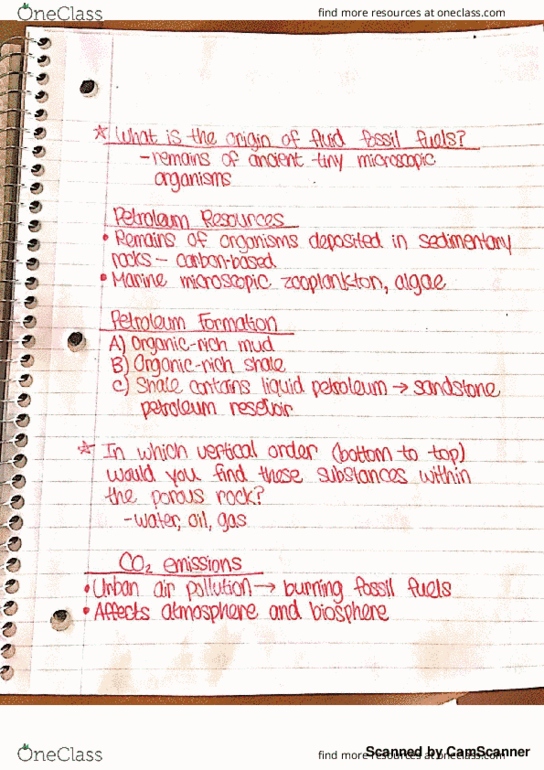 OneClass
find more resources at oneclass.com
☆ What is the origin of fluid fossil fuels?
- remains of ancient tiny microscopic
organisms
Petroleum Resources
• Remains of organisms deposited in sedimentary
rocks - carbon-based
• Marine microscopic zooplankton, algae
Petroleum Formation
A) Organic-rich mud
B) Organic-rich shale
C) Shale contains liquid petroleum → sandstone
petroleum resevoir
☆ In which vertical order (bottom to top)
would you find these substances within
the porous rock?
- water, oil, gas
CO₂ emissions
• Urban air pollution → burning fossil fuels
• Affects atmosphere and biosphere
OneClass
find more resources at oneclass.com
Scanned by CamScanner